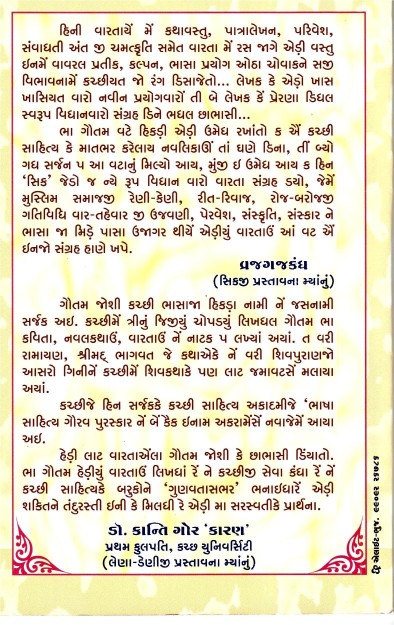 હિની વારતાયેં મેં કથાવસ્તુ, પાત્રાલેખન, પરિવેશ,
સંવાધતી અંત જી ચમત્કૃતિ સમેત વારતા મેં રસ જાગે એડી વસ્તુ
ઇનમેં વાવરલ પ્રતીક, કલ્પન, ભાસા પ્રયોગ ઓઠા ચોવાકને સજી
વિભાવનામેં કચ્છીયત જો રંગ ડિસાજેતો... લેખક કે એડો ખાસ
ખાસિયત વારો નવીન પ્રયોગવારોં તી બે લેખક કેં પ્રેરણા ડિધલ
સ્વરૂપ વિધાનવારો સંગ્રહ ડિને ભધલ છાભાસી...
ભા ગૌતમ વટે હિકડી એડી ઉમેધ રખાંતો ક ઐં કચ્છી
સાહિત્ય કે માતભર કરેલાય નવલિકાઊં તાં ઘણે ડિના, તીં બ્યો
ગધ સર્જન પ આ વટાનું મિલ્યો આય, મુંજી ઇ ઉમેધ આય ક હિન
‘સિક’ જેડો જ ન્યે રૂપ વિધાન વારો વારતા સંગ્રહ ડયો, જેમેં
મુસ્લિમ સમાજજી રેણી-કેણી, રીત-રિવાજ, રોજ-બરોજજી
ગતિવિધિ વાર-તહેવાર જી ઉજવણી, પેરવેશ, સંસ્કૃતિ, સંસ્કાર ને
ભાસા જા મિડે પાસા ઉજાગર થીયેં એડીયું વારતાઉં આં વટ ઐં
ઇનજો સંગ્રહ હાણે ખપે.
વ્રજગજકંધ
(સિકજી પ્રસ્તાવના મ્યાંનું)
ગૌતમ જોશી કચ્છી ભાસાજા હિકડા નામી નેં જસનામી
સર્જક અઇં. કચ્છીમેં ત્રીનું જિજીયું ચોપડયું લિખધલ ગૌતમ ભા
કવિતા, નવલકથાઉં, વારતાઉં નેં નાટક પ લખ્યાં અયાં. ત વરી
રામાયણ, શ્રીમદ્ ભાગવત જે કથાએકે નેં વરી શિવપુરાણજો
આસરો ગિનીને કચ્છીમેં શિવકથાકે પણ લાટ જમાવટસેં મલાયા
અયાં.
કચ્છીજે હિન સર્જકકે કચ્છી સાહિત્ય અકાદમીજે ‘ભાષા
સાહિત્ય ગૌરવ પુરસ્કાર નેં બેં કૈક ઇનામ અકરામેંસેં નવાજેમેં આયા
અઇં.
હેડી લાટ વારતાએંલા ગૌતમ જોશી કે છાભાસી ડિયાંતો.
ભા ગૌતમ હેડીયું વારતાઉં લિખધાં રેં ને કચ્છીજી સેવા કંધા રેં નેં
કચ્છી સાહિત્યકે બરુકોને ‘ગુણવતાસભર’ ભનાઇધારેં એડી
શકિતને તંદુરસ્તી ઇની કે મિલધી રે એડી મા સરસ્વતીકે પ્રાર્થના.
ડો. કાન્તિ ગોર ‘કારણ’
પ્રથમ કુલપતિ, કચ્છ યુનિવર્સિટી
(લેણા-ડેણીજી પ્રસ્તાવના મ્યાંનું)
એલાઇટ-ભુજ.